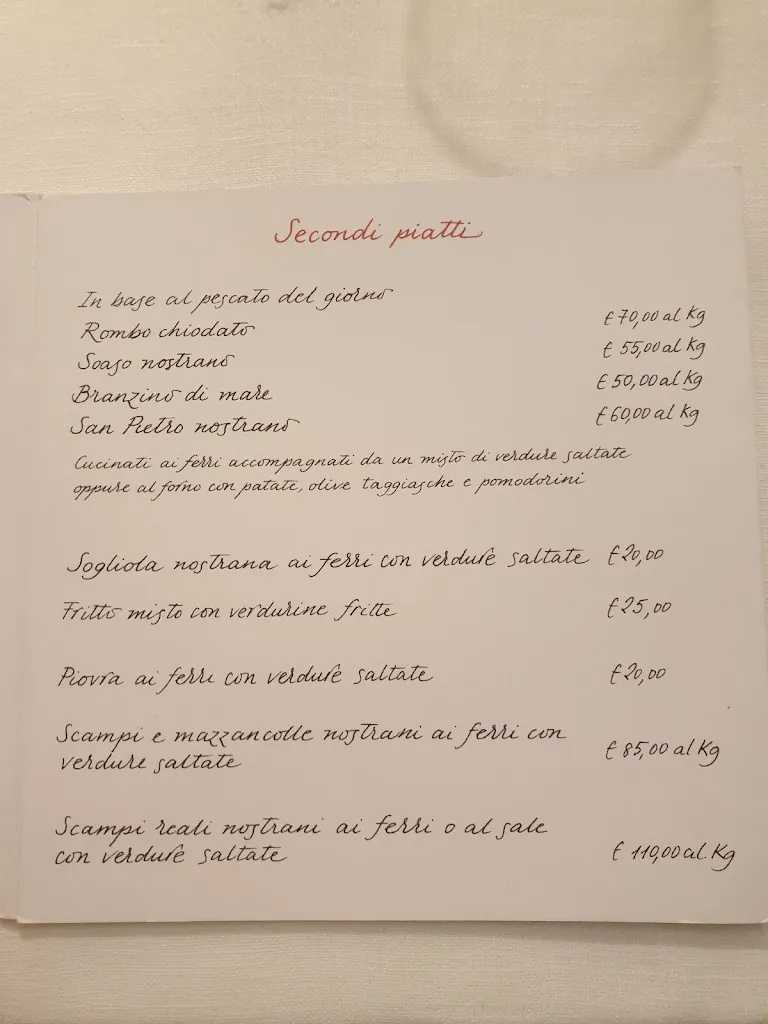 Secondi piatti
In base al pescato del giorno
Rombo chiodato € 70,00 al Kg
Soaso nostrano € 55,00 al Kg
Branzino di mare € 50,00 al Kg
San Pietro nostrano € 60,00 al Kg
Cucinati ai ferri accompagnati da un misto di verdure saltate
oppure al forno con patate, olive taggiasche e pomodorini
Sogliola nostrana ai ferri con verdure saltate € 20,00
Fritto misto con verdurine fritte € 25,00
Piovra ai ferri con verdure saltate € 20,00
Scampi e mazzancolle nostrani ai ferri con
verdure saltate € 85,00 al Kg
Scampi reali nostrani ai ferri o al sale
con verdure saltate € 110,00 al Kg